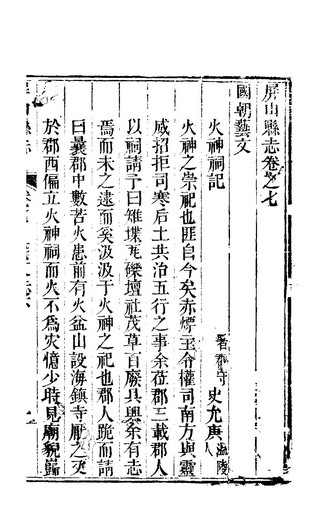 屏山縣志卷之七
國朝藝文
火神祠記
署郡守史允庚溫陵
火神之崇祀也匪自今矣赤熛主令權司南方與靈
威招拒司寒后土共治五行之事余莅郡三載郡人
以祠請予曰雉堞瓦礫壇社茂草百廢具興余有志
焉而未之逮而矣汲汲于火神之祀也郡人跪而請
曰曩郡中數苦火患前有火盆山設海鎮寺厭之又
於郡西偏立火神祠而火不為災憶少時見廟貌巋